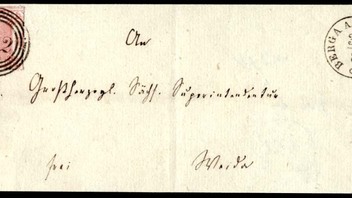 An
Großherzogl. Sächs. Superintendentur
frei Weida
BERGA A